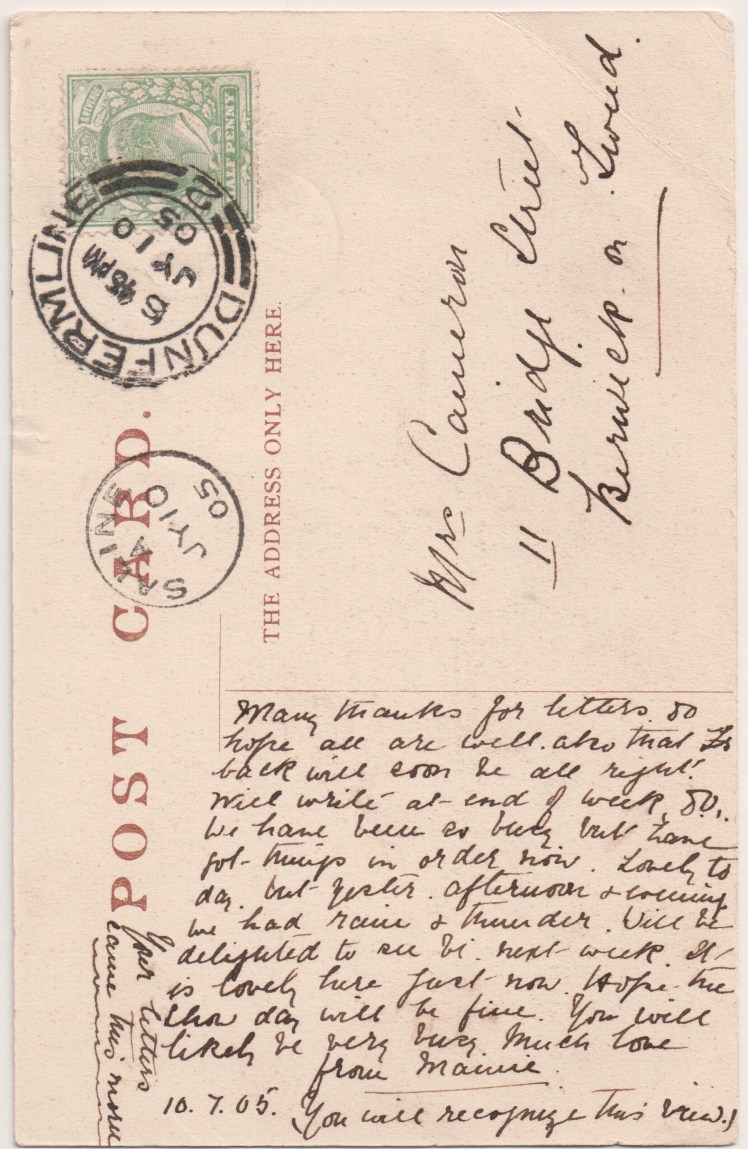 POST CARD.
THE ADDRESS ONLY HERE.
HALF PENNY
DUNFERMLINE
6 45 PM
JY 10
05
2
SALINE
A
JY 10
05
Mrs Cameron
11 Bridge Street
Berwick on Tweed.
Many thanks for letters. So
hope all are well. also that
back will soon be all right.
Will write at end of week.
We have been so busy but have
got things in order now. Lovely to
day. but yester. afternoon & evening
we had rain & thunder. Will be
delighted to see next week. It
is lovely here just now. Hope the
show day will be fine. You will
likely be very busy. Much love
from Mamie.
10.7.05. (You will recognize this view.)
Your letters
came this morn